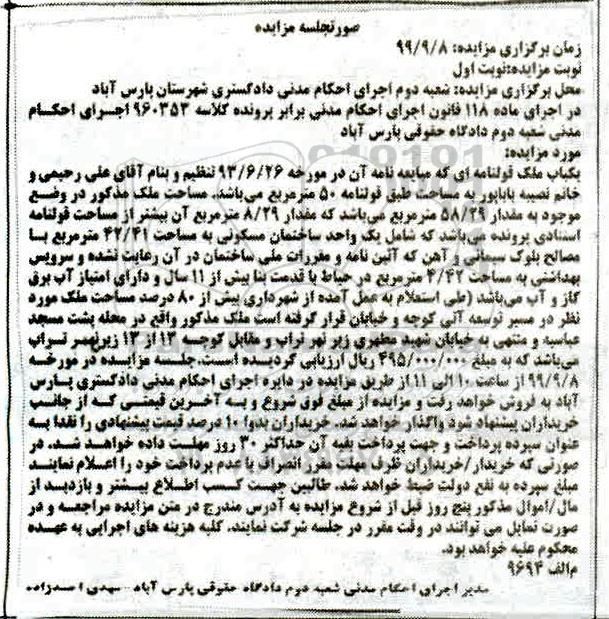 صورتجلسه مزایده
زمان برگزاری مزایده: ۹۹/۹/۸
نوبت مزایده:نوبت اول
محل برگزاری مزایده: شعبه دوم اجرای احکام مدنی دادگستری شهرستان پارس آباد
در اجرای ماده ۱۱۸ قانون اجرای احکام مدنی برابر پرونده کلاسه ۹۶۰۳۵۳ اجرای احکام
مدنی شعبه دوم دادگاه حقوقی پارس آباد
مورد مزایده:
یکباب ملک قولنامه ای که مبایعه نامه آن در مورخه ۹۳/۶/۲۶ تنظیم و بنام آقای علی رحیمی و
خانم نصیبه باباپور به مساحت طبق قولنامه ۵۰ مترمربع می‌باشد. مساحت ملک مذکور در وضع
موجود به مقدار ۵۸/۲۹ مترمربع می‌باشد که مقدار ۸/۲۹ مترمربع آن بیشتر از مساحت قولنامه
استنادی پرونده می‌باشد که شامل یک واحد ساختمان مسکونی به مساحت ۴۲/۴۱ مترمربع با
مصالح بلوک سیمانی و آهن که آئین نامه و مقررات ملی ساختمان در آن رعایت نشده و سرویس
بهداشتی به مساحت ۴/۴۲ مترمربع در حیاط با قدمت بنا بیش از ۱۱ سال و دارای امتیاز آب برق
گاز و آب می‌باشد (طی استعلام به عمل آمده از شهرداری بیش از ۸۰ درصد مساحت ملک مورد
نظر در مسیر توسعه آتی کوچه و خیابان قرار گرفته است ملک مذکور واقع در محله پشت مسجد
عباسیه و منتهی به خیابان شهید مطهری زیر نهر تراب و مقابل کوچه ۱۳ از ۱۳ زیرنهر تراب
می‌باشد که به مبلغ ۴۹۵/۰۰۰/۰۰۰ ریال ارزیابی گردیده است.جلسه مزایده در مورخه
۹۹/۹/۸ از ساعت ۱۰ الی ۱۱ از طریق مزایده در دایره اجرای احکام مدنی دادگستری پارس
آباد به فروش خواهد رفت و مزایده از مبلغ فوق شروع و به آخرین قیمتی که از جانب
خریداران پیشنهاد شود واگذار خواهد شد. خریداران بدوا ۱۰ درصد قیمت پیشنهادی را نقدا به
عنوان سپرده پرداخت و جهت پرداخت بقیه آن حداکثر ۳۰ روز مهلت داده خواهد شد. در
صورتی که خریدار/خریداران ظرف مهلت مقرر انصراف یا عدم پرداخت خود را اعلام نمایند
مبلغ سپرده به نفع دولت ضبط خواهد شد. طالبین جهت کسب اطلاع بیشتر و بازدید از
مال/اموال مذکور پنج روز قبل از شروع مزایده به آدرس مندرج در متن مزایده مراجعه و در
صورت تمایل می توانند در وقت مقرر در جلسه شرکت نمایند. کلیه هزینه های اجرایی به عهده
محکوم علیه خواهد بود.
م‌الف ۹۶۹۴
مدیر اجرای احکام مدنی شعبه دوم دادگاه حقوقی پارس آباد - مهدی اسدزاده